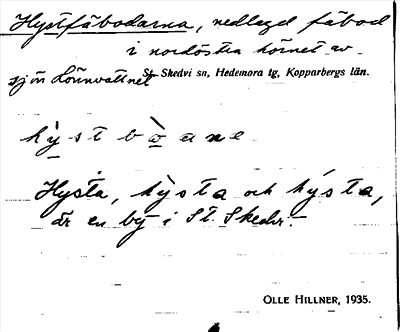 Hystfäbodarna, nedlagd fäbod
i nordöstra hörnet av
sjön Lönnvattnet
St. Skedvi sn, Hedemora tg, Kopparbergs län.
hỳstbòane
Hysta, hỳsta och hýsta,
är en by i St. Skedvi.
OLLE HILLNER, 1935.